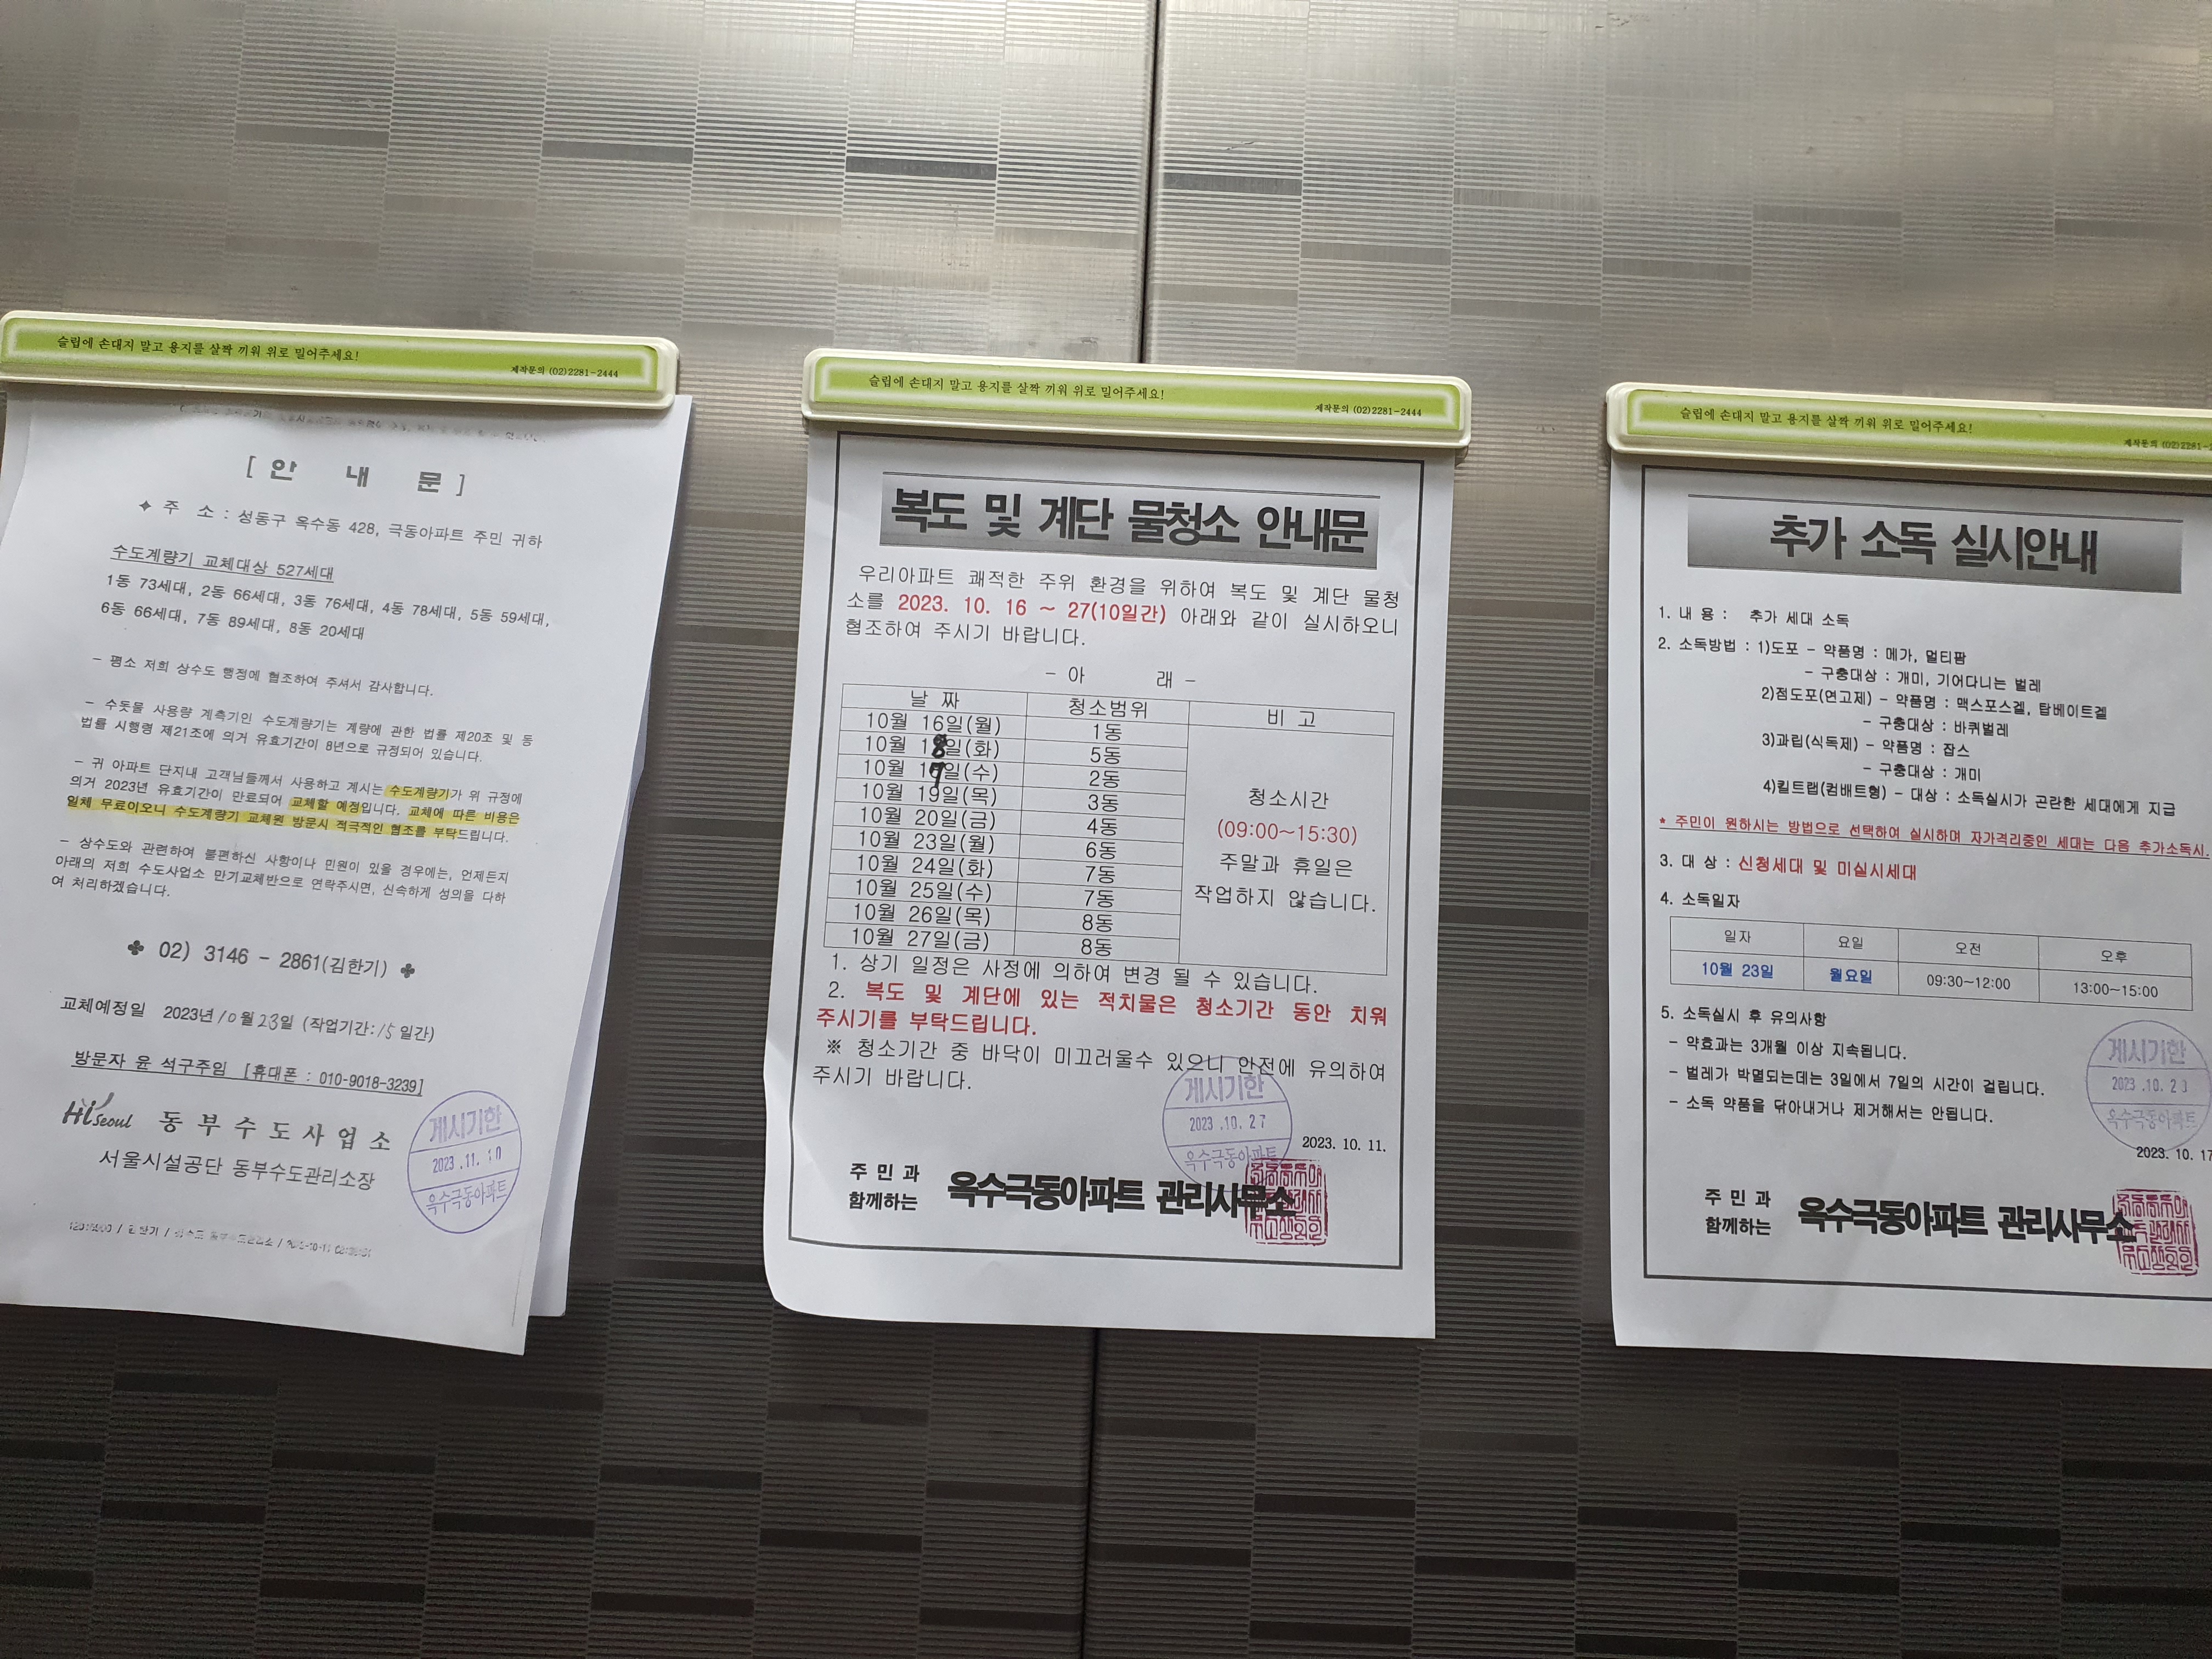 슬립에 손대지 말고 용지를 살짝 끼워 위로 밀어주세요!
제작문의 (02)2281-2444
[ 안 내 문 ]
✦ 주 소 : 성동구 옥수동 428, 극동아파트 주민 귀하
수도계량기 교체대상 527세대
1동 73세대, 2동 66세대, 3동 76세대, 4동 78세대, 5동 59세대,
6동 66세대, 7동 89세대, 8동 20세대
- 평소 저희 상수도 행정에 협조하여 주셔서 감사합니다.
- 수돗물 사용량 계측기인 수도계량기는 계량에 관한 법률 제20조 및 동
법률 시행령 제21조에 의거 유효기간이 8년으로 규정되어 있습니다.
- 귀 아파트 단지내 고객님들께서 사용하고 계시는 수도계량기가 위 규정에
의거 2023년 유효기간이 만료되어 교체할 예정입니다. 교체에 따른 비용은
일체 무료이오니 수도계량기 교체원 방문시 적극적인 협조를 부탁드립니다.
- 상수도와 관련하여 불편하신 사항이나 민원이 있을 경우에는, 언제든지
아래의 저희 수도사업소 만기교체반으로 연락주시면, 신속하게 성의을 다하
여 처리하겠습니다.
✤ 02) 3146 - 2861(김한기) ✤
교체예정일 2023년 10월 23일 (작업기간:15일간)
방문자 윤 석구주임 [휴대폰 : 010-9018-3239]
Hi Seoul 동부수도사업소
서울시설공단 동부수도관리소장
게시기한
2023.11.10
옥수극동아파트
슬립에 손대지 말고 용지를 살짝 끼워 위로 밀어주세요!
제작문의 (02)2281-2444
복도 및 계단 물청소 안내문
우리아파트 쾌적한 주위 환경을 위하여 복도 및 계단 물청
소를 2023. 10. 16 ~ 27(10일간) 아래와 같이 실시하오니
협조하여 주시기 바랍니다.
- 아 래 -
날 짜 청소범위 비 고
10월 16일(월) 1동
10월 18일(화) 5동
10월 17일(수) 2동
10월 19일(목) 3동
10월 20일(금) 4동
10월 23일(월) 6동
10월 24일(화) 7동
10월 25일(수) 7동
10월 26일(목) 8동
10월 27일(금) 8동
청소시간
(09:00~15:30)
주말과 휴일은
작업하지 않습니다.
1. 상기 일정은 사정에 의하여 변경 될 수 있습니다.
2. 복도 및 계단에 있는 적치물은 청소기간 동안 치워
주시기를 부탁드립니다.
※ 청소기간 중 바닥이 미끄러울수 있으니 안전에 유의하여
주시기 바랍니다.
게시기한
2023.10.27
옥수극동아파트
2023. 10. 11.
주민과
함께하는 옥수극동아파트 관리사무소
슬립에 손대지 말고 용지를 살짝 끼워 위로 밀어주세요!
제작문의 (02)2281-2
추가 소독 실시안내
1. 내 용 : 추가 세대 소독
2. 소독방법 : 1)도포 - 약품명 : 메가, 멀티팜
- 구충대상 : 개미, 기어다니는 벌레
2)점도포(연고제) - 약품명 : 맥스포스겔, 탑베이트겔
- 구충대상 : 바퀴벌레
3)과립(식독제) - 약품명 : 잡스
- 구충대상 : 개미
4)킬트랩(컴배트형) - 대상 : 소독실시가 곤란한 세대에게 지급
* 주민이 원하시는 방법으로 선택하여 실시하며 자가격리중인 세대는 다음 추가소독시.
3. 대 상 : 신청세대 및 미실시세대
4. 소독일자
일자 요일 오전 오후
10월 23일 월요일 09:30~12:00 13:00~15:00
5. 소독실시 후 유의사항
- 약효과는 3개월 이상 지속됩니다.
- 벌레가 박멸되는데는 3일에서 7일의 시간이 걸립니다.
- 소독 약품을 닦아내거나 제거해서는 안됩니다.
게시기한
2023.10.23
옥수극동아파트
2023. 10. 17
주민과
함께하는 옥수극동아파트 관리사무소